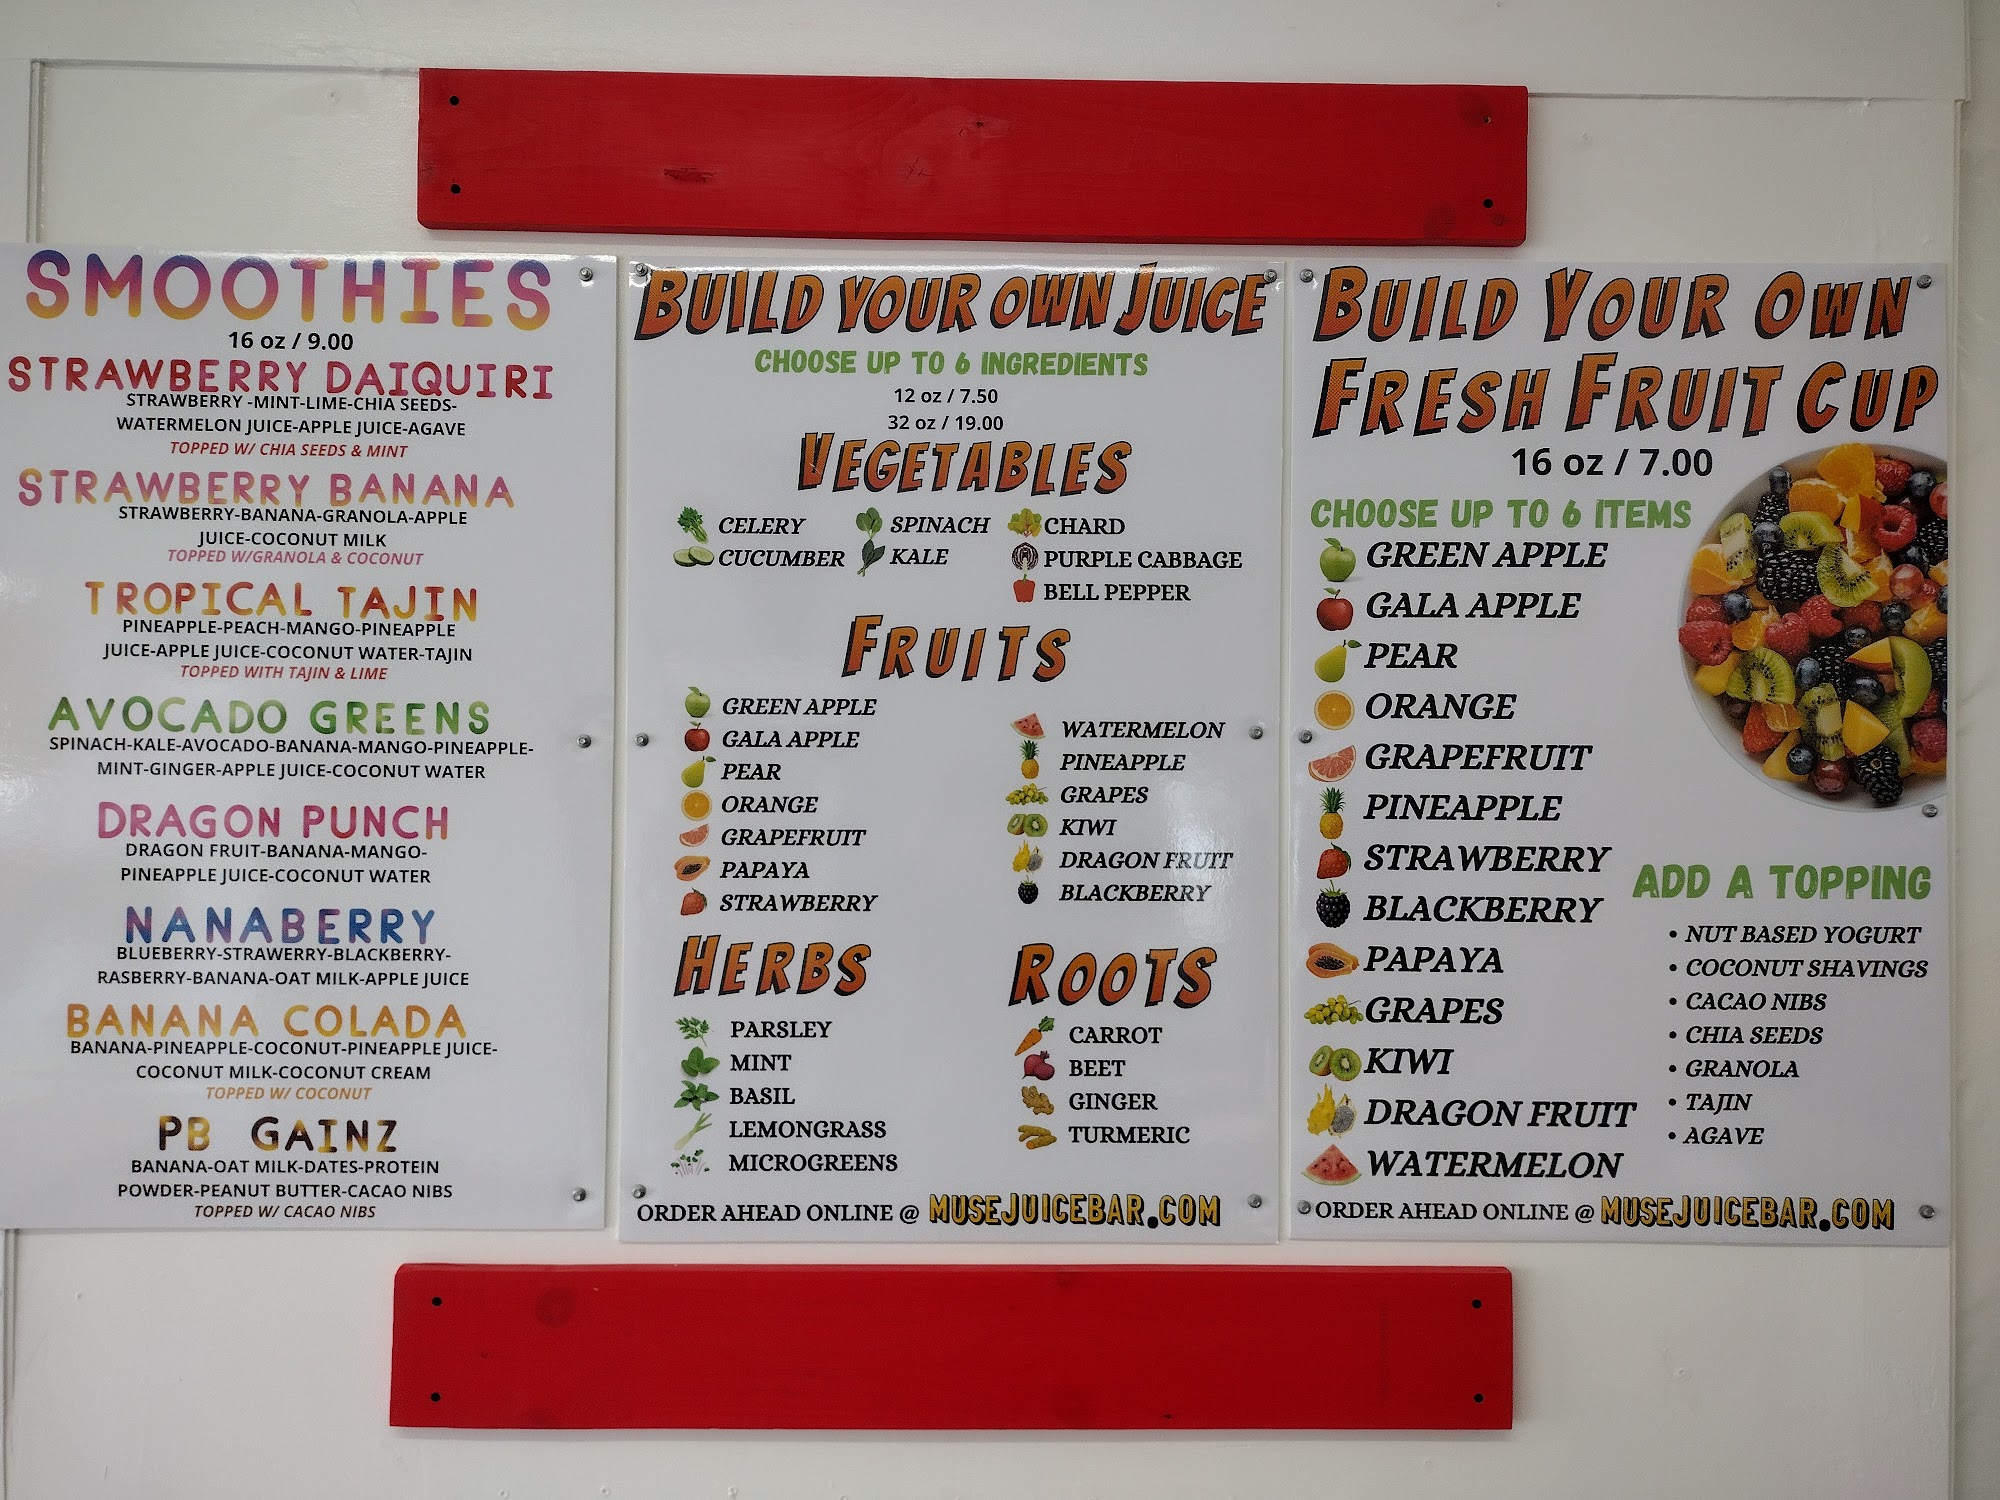 SMOOTHIES
16 oz / 9.00
STRAWBERRY DAIQUIRI
STRAWBERRY -MINT-LIME-CHIA SEEDS-
WATERMELON JUICE-APPLE JUICE-AGAVE
TOPPED W/ CHIA SEEDS & MINT
STRAWBERRY BANANA
STRAWBERRY-BANANA-GRANOLA-APPLE
JUICE-COCONUT MILK
TOPPED W/GRANOLA & COCONUT
TROPICAL TAJIN
PINEAPPLE-PEACH-MANGO-PINEAPPLE
JUICE-APPLE JUICE-COCONUT WATER-TAJIN
TOPPED WITH TAJIN & LIME
AVOCADO GREENS
SPINACH-KALE-AVOCADO-BANANA-MANGO-PINEAPPLE-
MINT-GINGER-APPLE JUICE-COCONUT WATER
DRAGON PUNCH
DRAGON FRUIT-BANANA-MANGO-
PINEAPPLE JUICE-COCONUT WATER
NANABERRY
BLUEBERRY-STRAWERRY-BLACKBERRY-
RASBERRY-BANANA-OAT MILK-APPLE JUICE
BANANA COLADA
BANANA-PINEAPPLE-COCONUT-PINEAPPLE JUICE-
COCONUT MILK-COCONUT CREAM
TOPPED W/ COCONUT
PB GAINZ
BANANA-OAT MILK-DATES-PROTEIN
POWDER-PEANUT BUTTER-CACAO NIBS
TOPPED W/ CACAO NIBS
BUILD YOUR OWN JUICE
CHOOSE UP TO 6 INGREDIENTS
12 oz / 7.50
32 oz / 19.00
VEGETABLES
CELERY
CUCUMBER
SPINACH
KALE
CHARD
PURPLE CABBAGE
BELL PEPPER
FRUITS
GREEN APPLE
GALA APPLE
PEAR
ORANGE
GRAPEFRUIT
PAPAYA
STRAWBERRY
WATERMELON
PINEAPPLE
GRAPES
KIWI
DRAGON FRUIT
BLACKBERRY
HERBS
PARSLEY
MINT
BASIL
LEMONGRASS
MICROGREENS
ROOTS
CARROT
BEET
GINGER
TURMERIC
ORDER AHEAD ONLINE @ MUSEJUICEBAR.COM
BUILD YOUR OWN
FRESH FRUIT CUP
16 oz / 7.00
CHOOSE UP TO 6 ITEMS
GREEN APPLE
GALA APPLE
PEAR
ORANGE
GRAPEFRUIT
PINEAPPLE
STRAWBERRY
BLACKBERRY
PAPAYA
GRAPES
KIWI
DRAGON FRUIT
WATERMELON
ADD A TOPPING
• NUT BASED YOGURT
• COCONUT SHAVINGS
• CACAO NIBS
• CHIA SEEDS
• GRANOLA
• TAJIN
• AGAVE
ORDER AHEAD ONLINE @ MUSEJUICEBAR.COM